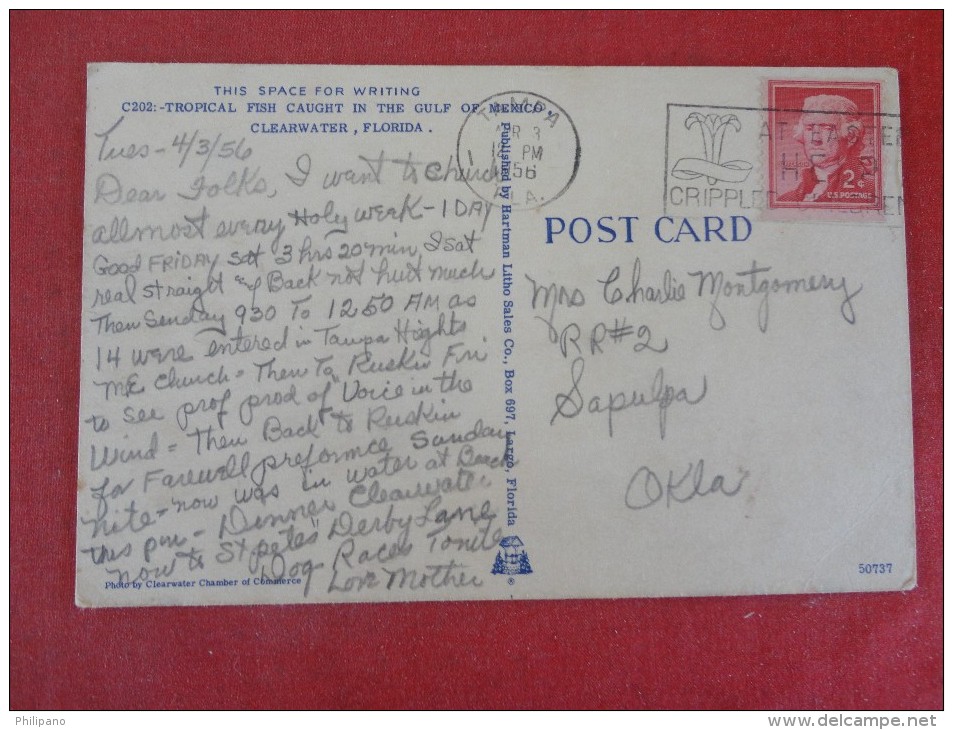 THIS SPACE FOR WRITING
C202:-TROPICAL FISH CAUGHT IN THE GULF OF MEXICO,
CLEARWATER, FLORIDA.
Tues - 4/3/56
Dear Folks, I want to Church
allmost every Holy week - 1 DAY
Good FRIDAY sat 3 hrs 20 min I sat
real straight & Back not hurt much
Then Senday 930 To 1250 AM as
14 were entered in Tampa Hights
M.E. Church = Then To Ruskin Fri
to see prof prod of "Voice in the
Wind = Then Back to Ruskin
for Farewell preformce Sunday
nite - now was in water at Beach
this pm - Dinner Clearwater
now to St petes "Derby Lane
Dog Races Tonite
Love Mother
Photo by Clearwater Chamber of Commerce
Published by Hartman Litho Sales Co., Box 697, Largo, Florida
®
TAMPA
APR 3
PM
1956
FLA.
AT EASTER
HELP
CRIPPLED CHILDREN
2¢
U.S. POSTAGE
POST CARD
Mrs Charlie Montgomery
RR#2
Sapulpa
Okla
50737
Philipano
www.delcampe.net